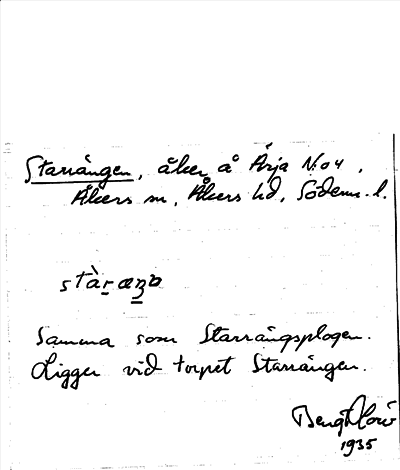 Starrängen, åker å Ärja N:o 4,
Åkers sn, Åkers hd, Söderm. l.
Samma som Starrängsplogen.
Ligger vid torpet Starrängen.
1935